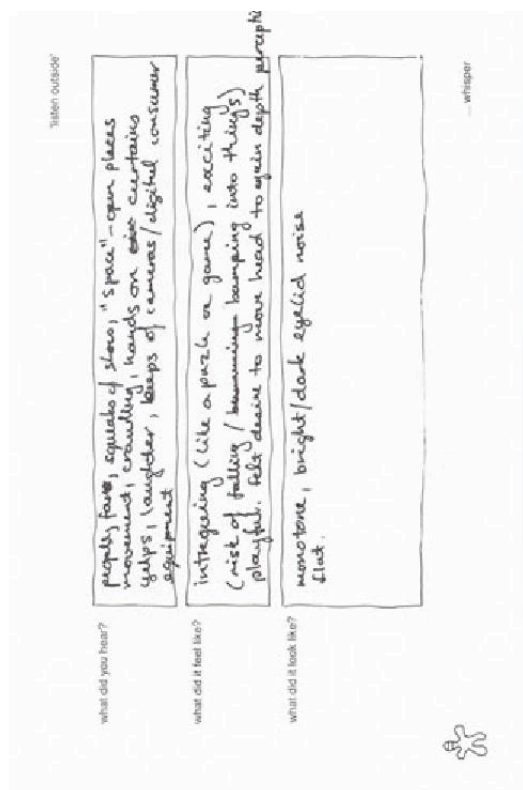 'listen outside'
what did you hear?
people, fans, squeaks of shoes, "space" – open places
movement, crawling, hands on curtains
yelps, laughter, beeps of cameras/digital consumer
equipment
what did it feel like?
intregueing (like a puzle or game), exciting
(risk of falling / bumping into things)
playful. felt desire to move head to again depth percepti
what did it look like?
monotone, bright/dark eyelid noise
flat.
... whisper